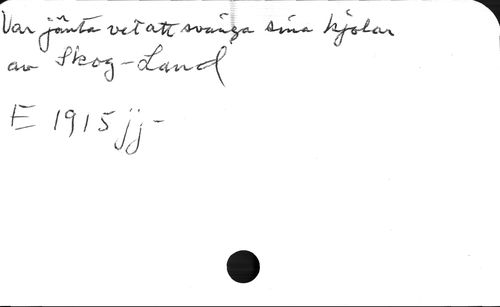 Var jänta vet att svänga sina kjolar
av Skog-Land
E 1915 jj-